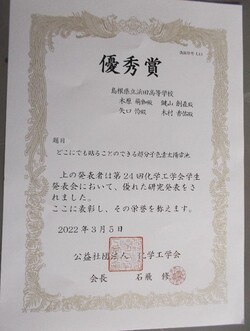 優秀賞
島根県立浜田高等学校
題目
どこにでも貼ることのできる超分子色素太陽電池
上の発表者は第24回化学工学会学生
発表会において、優れた研究発表をさ
れました。
ここに表彰し、その栄誉を称えます。
2022年3月5日
公益社団法人 化学工学会
会長 石飛 修